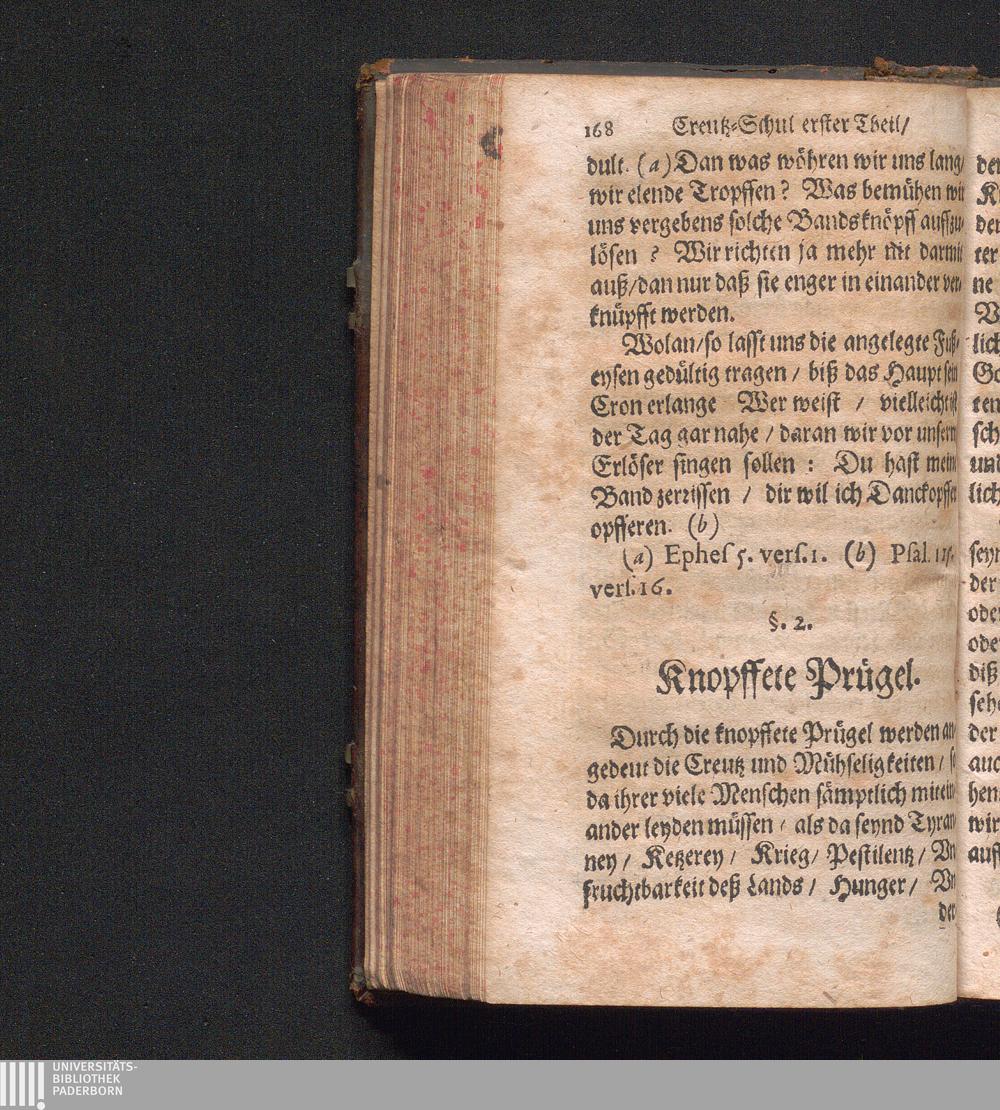 168 Creutz-Schul erster Theil/
dult. (a) Dan was wöhren wir uns lang/
wir elende Tropffen? Was bemühen wir
uns vergebens solche Bandsknöpff auffzu-
lösen? Wir richten ja mehr nit darmit
auß/dan nur daß sie enger in einander ver-
knüpfft werden.
Wolan/so lasst uns die angelegte Fuß-
eysen gedültig tragen / biß das Haupt sein
Cron erlange Wer weist / vielleicht ist
der Tag gar nahe / daran wir vor unserm
Erlöser singen sollen : Du hast meine
Band zerrissen / dir wil ich Danckopffer
opfferen. (b)
(a) Ephes 5. vers. 1. (b) Psal. 115.
vers. 16.
§. 2.
Knopffete Prügel.
Durch die knopffete Prügel werden an-
gedeut die Creutz und Mühseligkeiten / so
da ihrer viele Menschen sämptlich mitein-
ander leyden müssen / als da seynd Tyran-
ney / Ketzerey / Krieg/ Pestilentz / Un-
fruchtbarkeit deß Lands / Hunger / Un-
der
UNIVERSITÄTS-
BIBLIOTHEK
PADERBORN